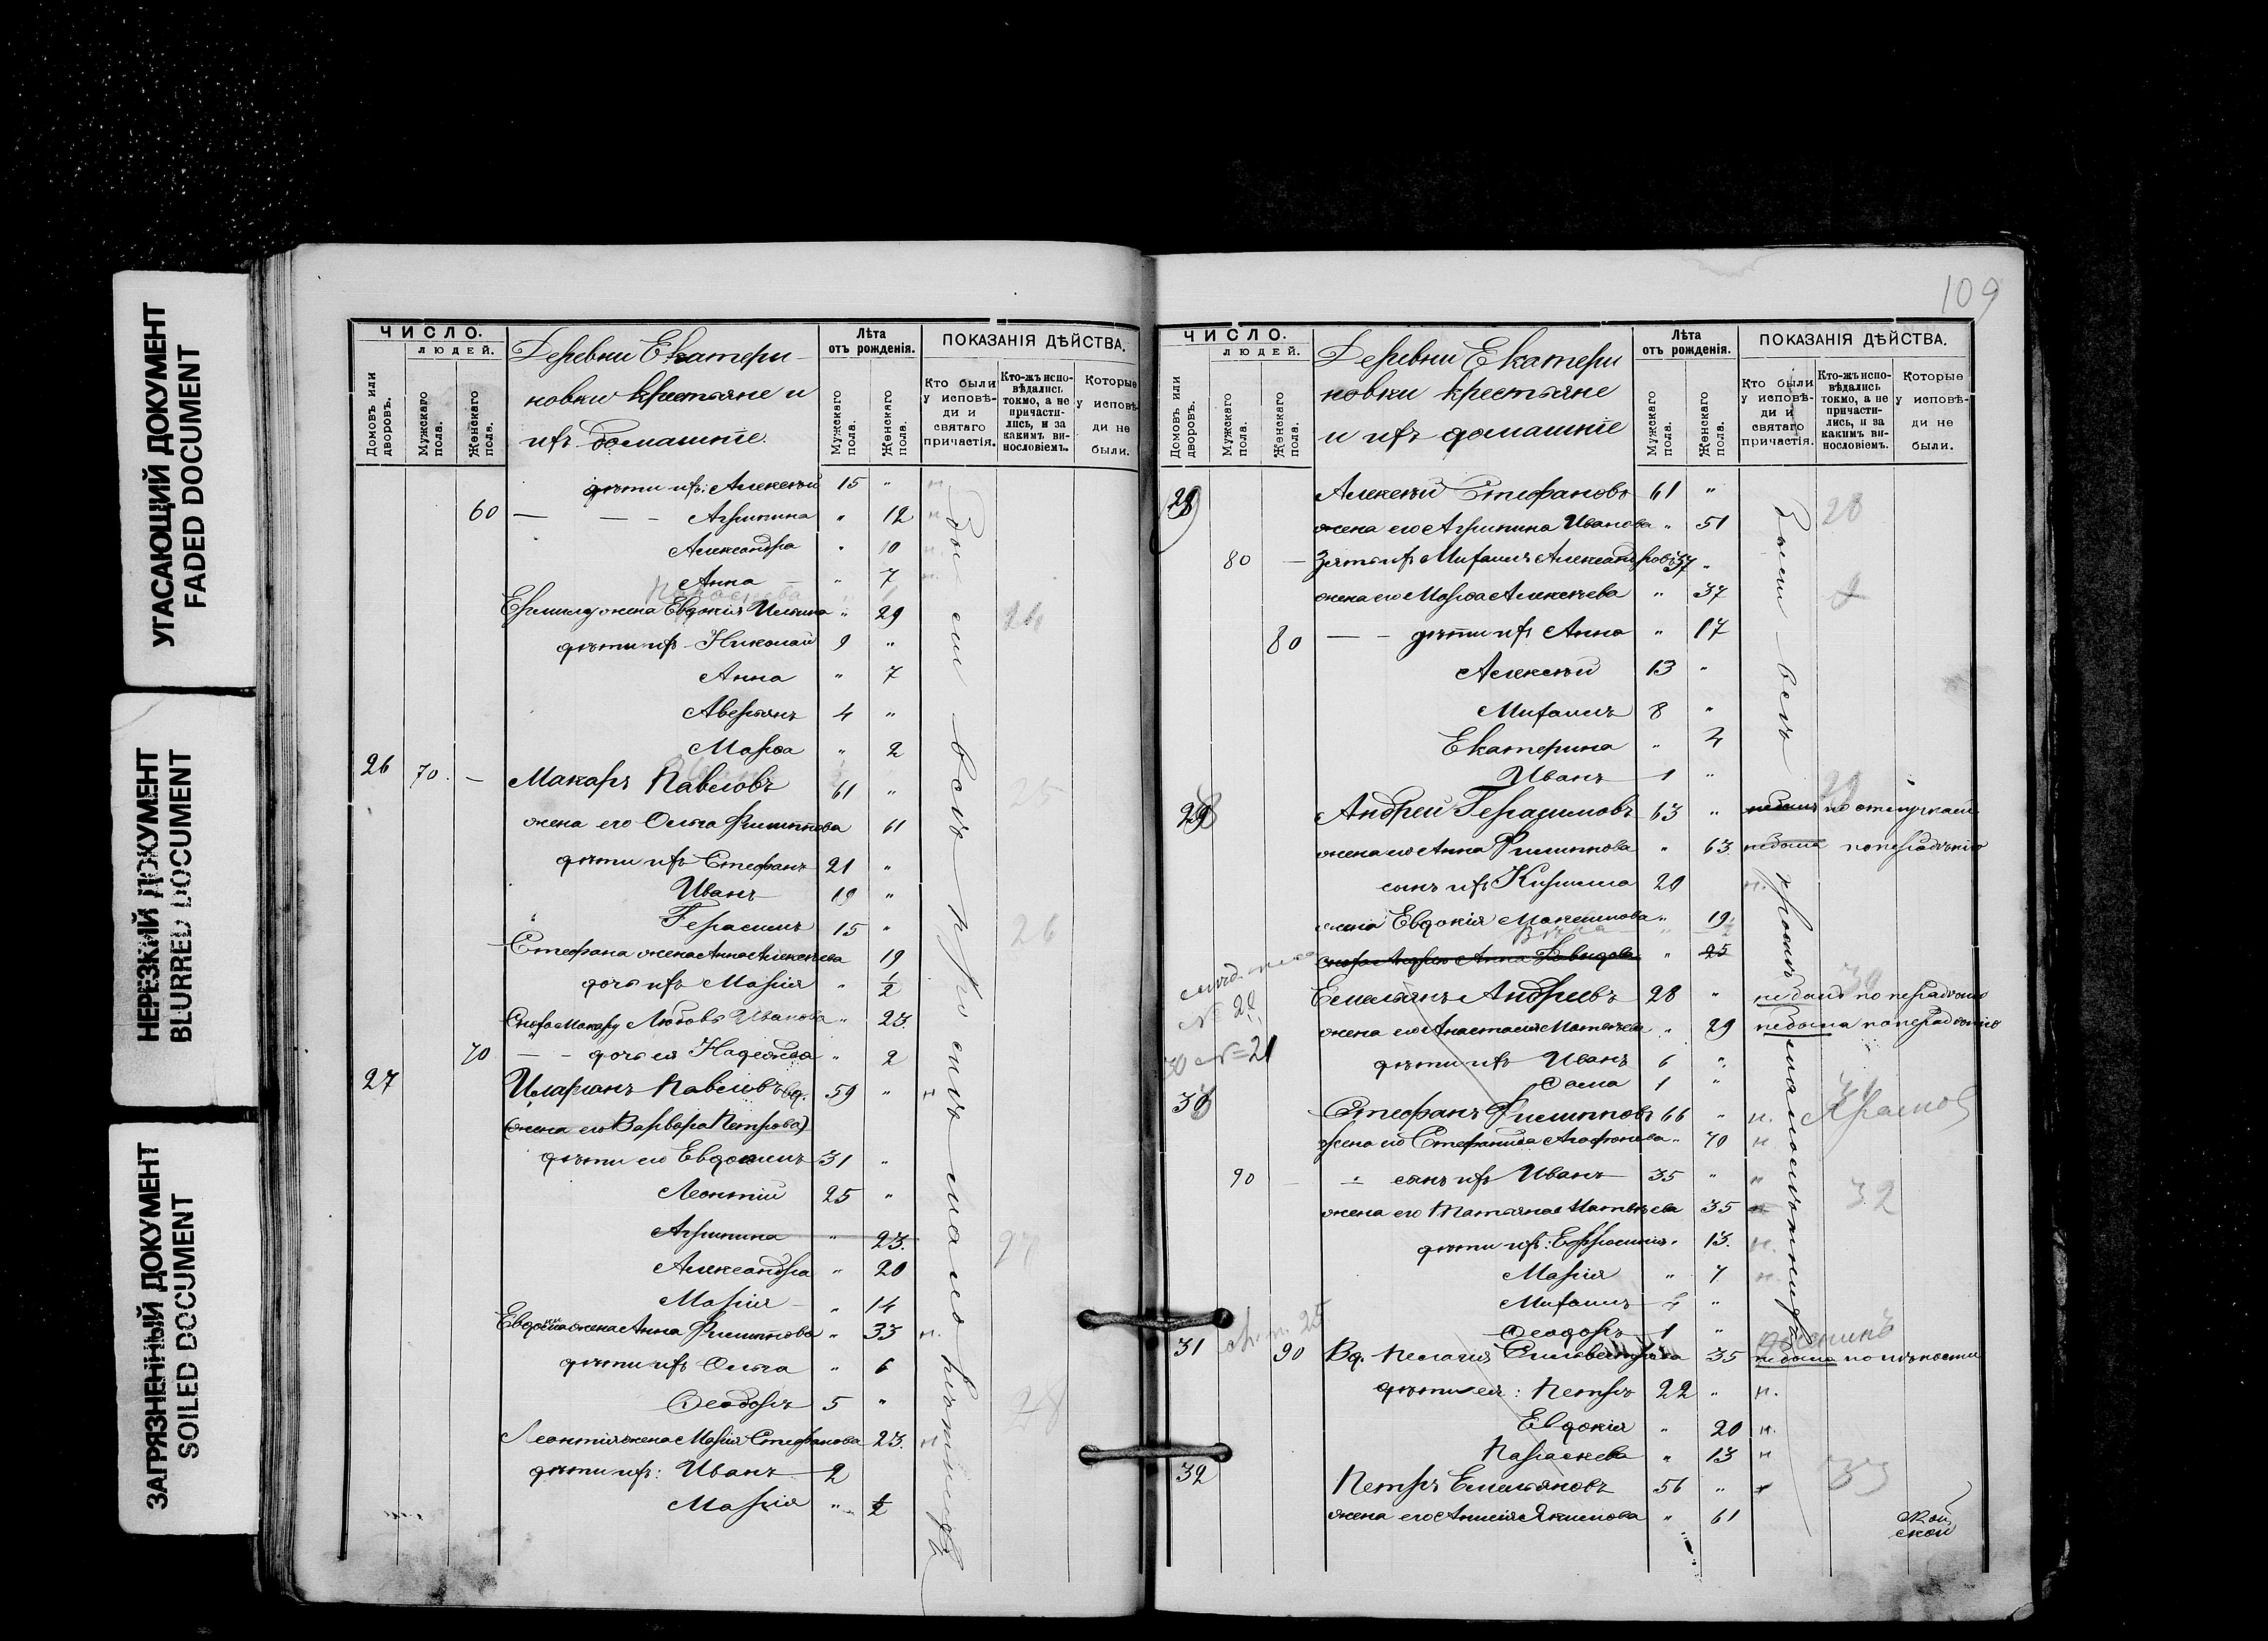 УГАСАЮЩИЙ ДОКУМЕНТ
FADED DOCUMENT
НЕРЕЗКИЙ ДОКУМЕНТ
BLURRED DOCUMENT
ЗАГРЯЗНЕННЫЙ ДОКУМЕНТ
SOILED DOCUMENT
ЧИСЛО.
людей.
Домовъ или дворовъ.
Мужскаго пола.
Женскаго пола.
Деревни Екатери-
новки крестьяне и
ихъ домашніе.
Лѣта
отъ рожденія.
Мужскаго пола.
Женскаго пола.
ПОКАЗАНІЯ ДѢЙСТВА.
Кто были у исповѣ-ди и святаго причастія.
Кто-жъ испо-вѣдались токмо, а не причасти-лись, и за какимъ ви-нословіемъ.
Которые у исповѣ-ди не были.
дѣти ихъ: Алексѣй 15 "  н
60 — — - Агрипина " 12 н
Александра " 10 н.
Анна " 7 н.
Ермила жена Евдокія Ильина " 29 24
дѣти ихъ Николай 9 "
Анна " 7
Аверьянъ 4 "
Марѳа " 2
26 70. — Макаръ Павловъ 61 " 25
жена его Ольга Филиппова 61
дѣти ихъ Стефанъ 21 "
Иванъ 19 "
Герасимъ 15 " 26
Стефана жена Анна Алексѣева 19
дочь ихъ Марія " 1/2
Сноха Макару Любовь Иванова " 23.
70 — - дочь ея Надежда " 2
27 Иларіонъ Павловъ вд. 59 " н
(жена его Варвара Петрова)
дѣти его Евдокимъ 31 "
Леонтій 25 "
Агрипина " 23. 27
Александра " 20
Марія " 14
Евдокима жена Анна Филиппова " 33 н.
дѣти ихъ Ольга " 6
Ѳеодоръ 5 " 28
Леонтія жена Марія Стефанова 23. н
дѣти ихъ: Иванъ 2
Марія " 1/2
Были всѣ кромѣ малолѣтнихъ
109
ЧИСЛО.
людей.
Домовъ или дворовъ.
Мужскаго пола.
Женскаго пола.
Деревни Екатери
новки крестьяне
и ихъ домашніе
Лѣта
отъ рожденія.
Мужскаго пола.
Женскаго пола.
ПОКАЗАНІЯ ДѢЙСТВА.
Кто были у исповѣ-ди и святаго причастія.
Кто-жъ испо-вѣдались токмо, а не причасти-лись, и за какимъ ви-нословіемъ.
Которые у исповѣ-ди не были.
28 Алексѣй Стефановъ 61 "
жена его Агрипина Иванова " 51
80 — Зять ихъ Михаилъ Александровъ 37 "
жена его Марѳа Алексѣева " 37
80 — - дѣти ихъ Анна " 17
Алексѣй 13 "
Михаилъ 8 "
Екатерина " 4
Иванъ 1 "
29 Андрей Герасимовъ 63 " не былъ по отлучкамъ
жена его Анна Филиппова " 63. не была по нерадѣнію
сынъ ихъ Кирилла 20 н.
жена Евдокія Максимова " 19
сноха Андрею Анна Давидова " 25
Емельянъ Андреевъ 28 " не былъ по нерадѣнію
жена его Анастасія Матвѣева " 29 не была по нерадѣнію
дѣти ихъ Иванъ 6 "
Ѳома 1 "
30 Стефанъ Филипповъ 66 " н.
жена его Стефанида Агафонова " 70 н
90 сынъ ихъ Иванъ 35 " н 32
жена его Татьяна Матвѣева 35 н
дѣти ихъ: Ефросинія " 13. н.
Марія " 7 н
Михаилъ 4 "
Ѳеодоръ 1 "
31 90 Вд. Пелагія Сильвестрова 35 не была по нѣмости
дѣти ея: Петръ 22 " н.
Евдокія " 20 н.
Параскева " 13 н
32 Петръ Емельяновъ 56 " н 33
жена его Анисія Якимова " 61
Были всѣ кромѣ малолѣтнихъ